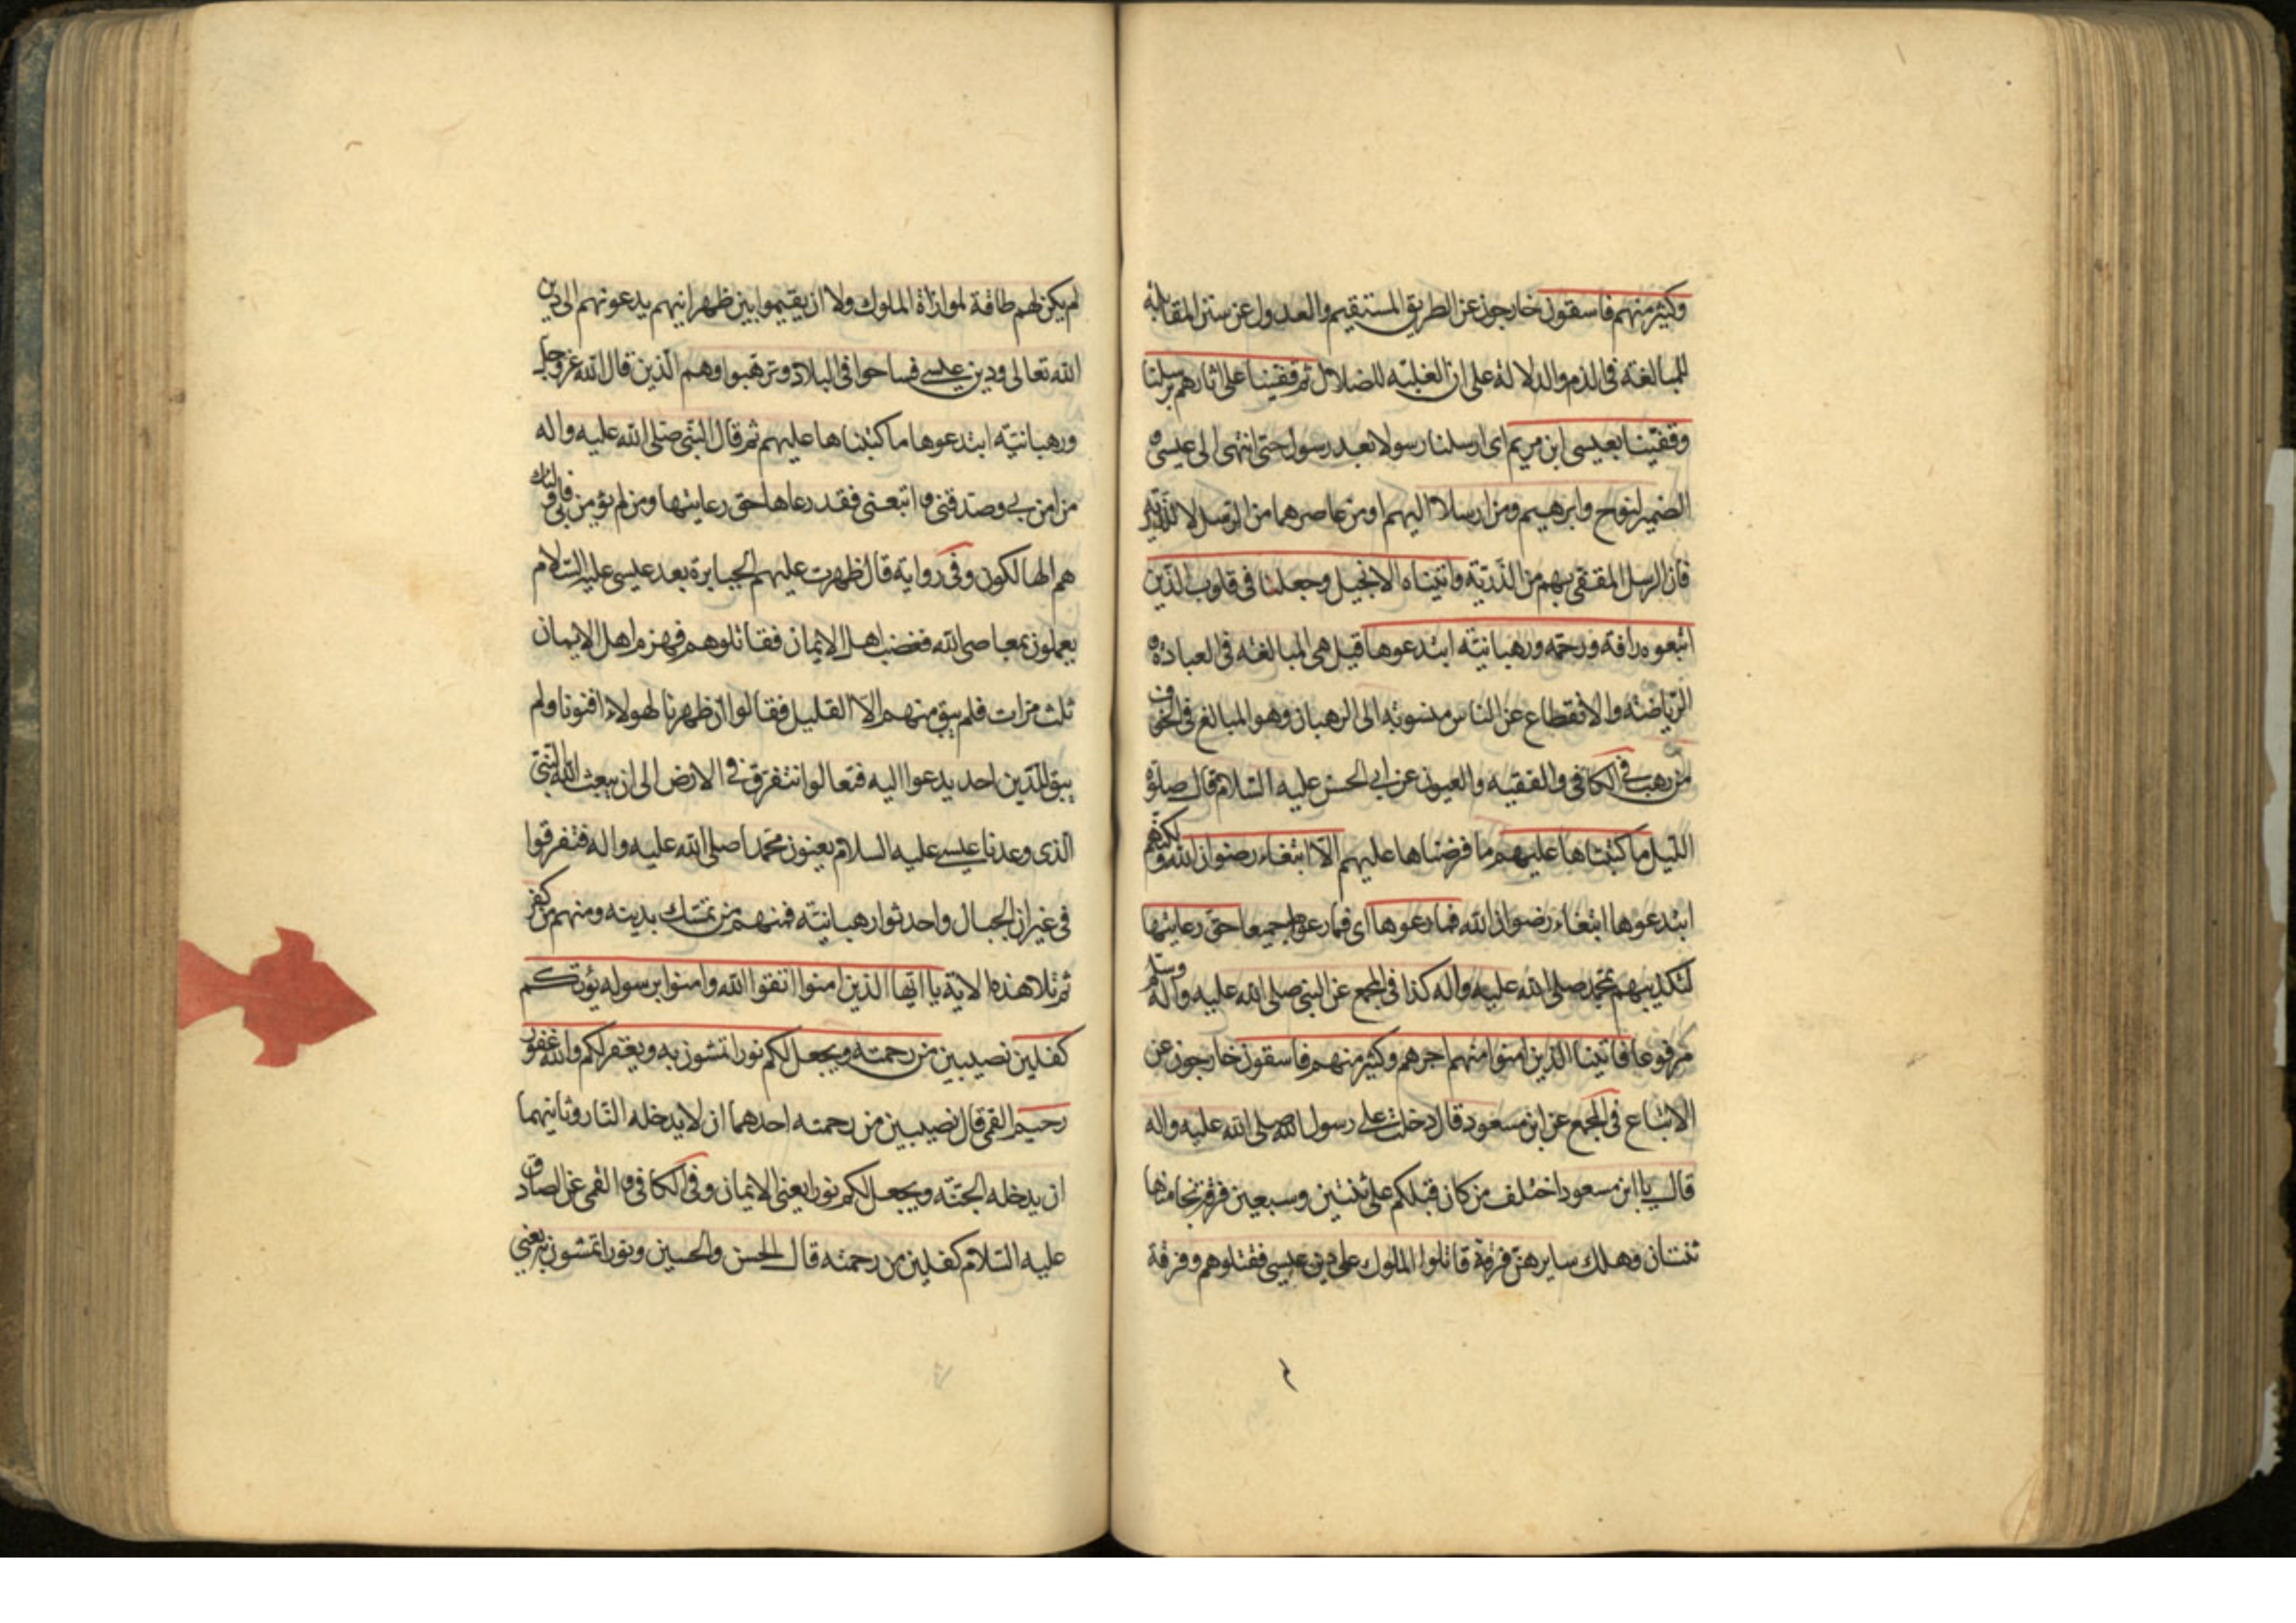 وكثير منهم فاسقون خارجون عن الطريق المستقيم والعدول عن سنن المقابلة
للمبالغة فى الذم والدلالة على ان الغلبة للضلال ثم قفينا على اثارهم برسلنا
وقفينا بعيسى ابن مريم اى ارسلنا رسولا بعد رسول حتى انتهى الى عيسى
الضمير لنوح وابرهيم ومن ارسلا اليهم او من عاصرهما من الرسل لا للذرية
فان الرسل المقفى بهم من الذرية واتيناه الانجيل وجعلنا فى قلوب الذين
اتبعوه رافة ورحمة ورهبانية ابتدعوها قيل هى المبالغة فى العبادة
الرياضة والانقطاع عن الناس منسوبة الى الرهبان وهو المبالغ فى الخوف
من رهب فى الكافى والفقيه والعيون عن ابى الحسن عليه السلام قال صلوة
الليل ما كتبناها عليهم ما فرضناها عليهم الا ابتغاء رضوان الله ولكنهم
ابتدعوها ابتغاء رضوان الله فما رعوها اى فما رعوها جميعا حق رعايتها
لتكذيبهم بمحمد صلى الله عليه واله كذا فى المجمع عن النبى صلى الله عليه واله وسلم
مرفوعا فاتينا الذين امنوا منهم اجرهم وكثير منهم فاسقون خارجون عن
الاتباع فى المجمع عن ابن مسعود قال دخلت على رسول الله صلى الله عليه واله
قال يا ابن مسعود اختلف من كان قبلكم على ثنتين وسبعين فرقة نجا منها
ثنتان وهلك سايرهن فرقة قاتلوا الملوك على دين عيسى فقتلوهم وفرقة
لم يكن لهم طاقة لموازاة الملوك ولا ان يقيموا بين ظهرانيهم يدعونهم الى دين
الله تعالى ودين عيسى فساحوا فى البلاد وترهبوا وهم الذين قال الله عز وجل
ورهبانية ابتدعوها ما كتبناها عليهم ثم قال النبى صلى الله عليه واله
من امن بى وصدقنى واتبعنى فقد رعاها حق رعايتها ومن لم يؤمن بى فاولئك
هم الهالكون وفى رواية قال ظهرت عليهم الجبابرة بعد عيسى عليه السلام
يعملون بمعاصى الله فغضب اهل الايمان فقاتلوهم فهزم اهل الايمان
ثلث مرات فلم يبق منهم الا القليل فقالوا ان ظهرنا لهولاء افنونا ولم
يبق للدين احد يدعوا اليه فتعالوا نتفرق فى الارض الى ان يبعث الله النبى
الذى وعدنا عيسى عليه السلام يعنون محمدا صلى الله عليه واله فتفرقوا
فى غيران الجبال واحدثوا رهبانية فمنهم من تمسك بدينه ومنهم من كفر
ثم تلا هذه الاية يا ايها الذين امنوا اتقوا الله وامنوا برسوله يؤتكم
كفلين نصيبين من رحمته ويجعل لكم نورا تمشون به ويغفر لكم والله غفور
رحيم القمى قال نصيبين من رحمته احدهما ان لا يدخله النار وثانيهما
ان يدخله الجنة ويجعل لكم نورا يعنى الايمان وفى الكافى والقمى عن الصادق
عليه السلام كفلين من رحمته قال الحسن والحسين ونورا تمشون به يعنى